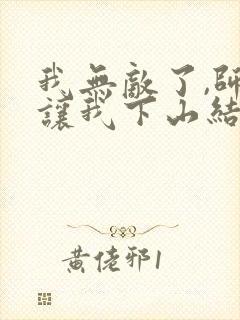 我無敵了,師
讓我下山結
黃佬邪1